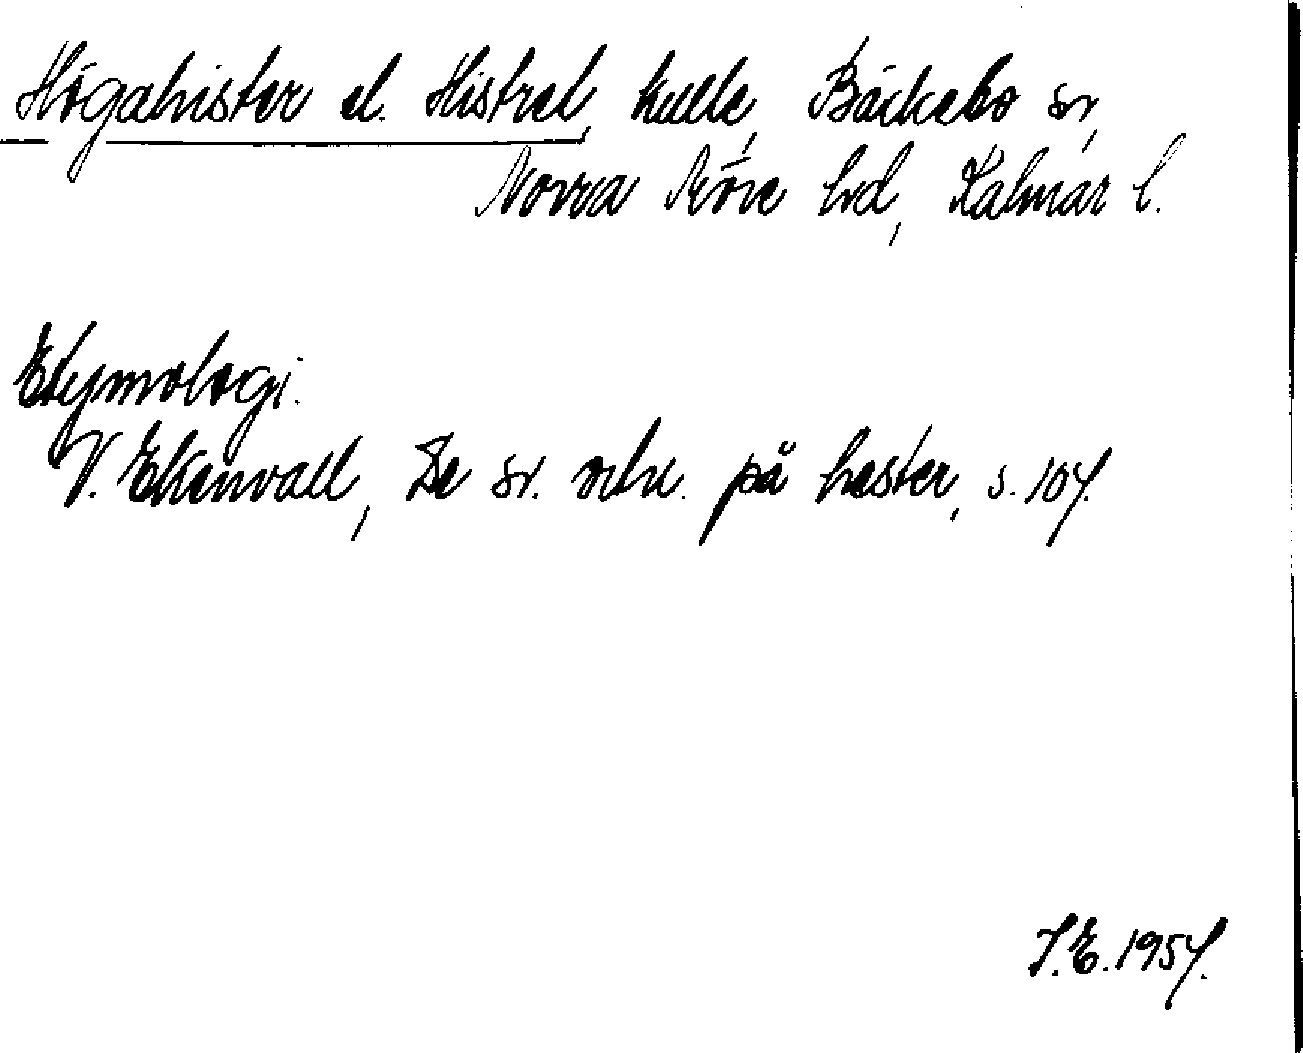 Högahister el. Histret, kulle, Bäckebo sn,
Norra Möre hd, Kalmar l.
Etymologi.
V. Ekenvall, De sv. ortn. på hester, s. 104.
J.E. 1954.